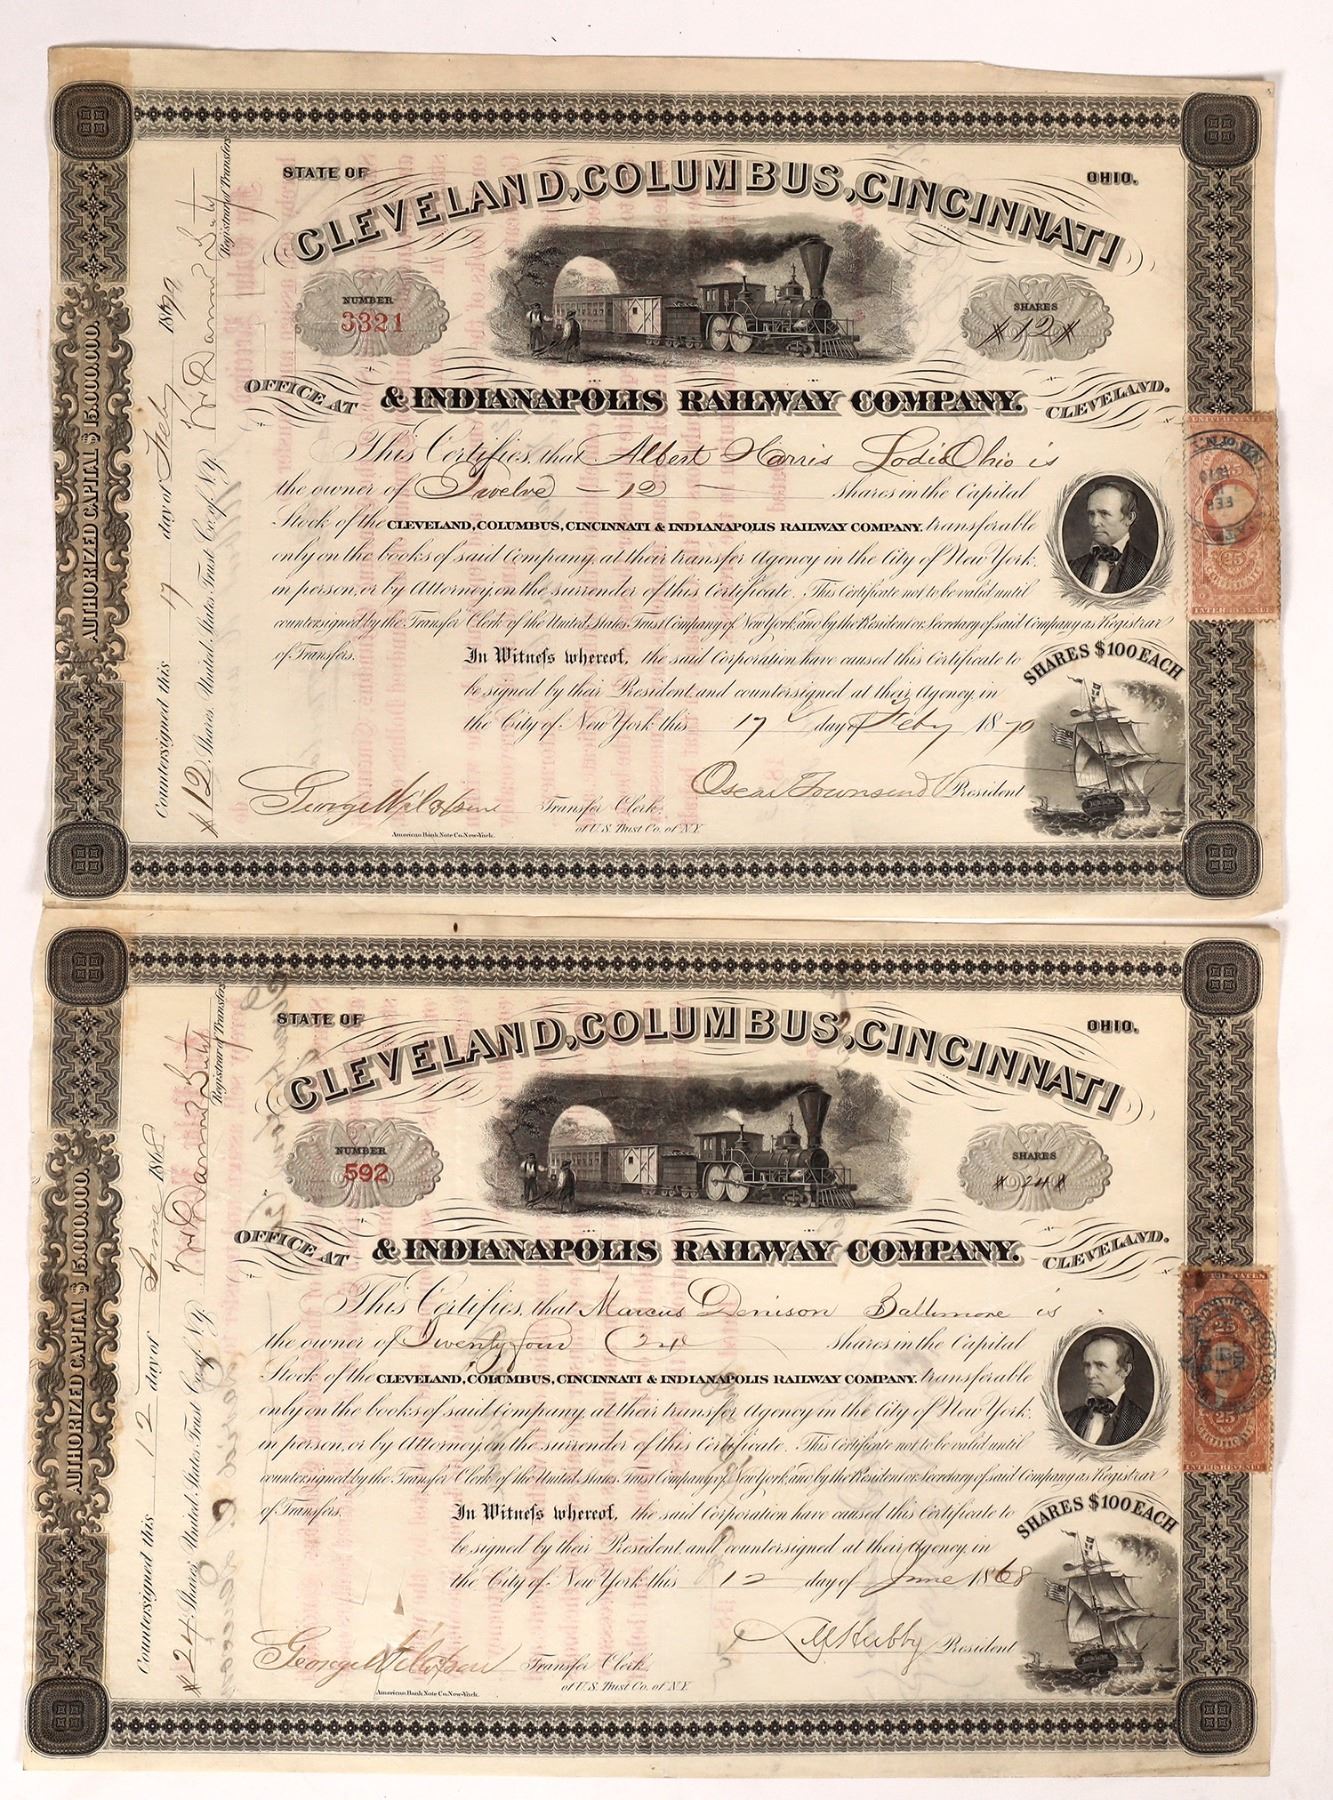 STATE OF OHIO.
CLEVELAND, COLUMBUS, CINCINNATI
NUMBER
3321
SHARES
12
OFFICE AT
& INDIANAPOLIS RAILWAY COMPANY.
CLEVELAND.
This Certifies, that Albert Harris Lodi Ohio is
the owner of Twelve - 12 - shares in the Capital
Stock of the CLEVELAND, COLUMBUS, CINCINNATI & INDIANAPOLIS RAILWAY COMPANY. transferable
only on the books of said Company, at their transfer Agency in the City of New York,
in person, or by Attorney, on the surrender of this Certificate. This Certificate not to be valid until
countersigned by the Transfer Clerk of the United States Trust Company of New York, and by the President or Secretary of said Company as Registrar
of Transfers.
In Witness whereof, the said Corporation have caused this Certificate to
be signed by their President, and countersigned at their Agency, in
the City of New York this 17 day of Feby 1870
SHARES $100 EACH
George Wilopson Transfer Clerk,
of U.S. Trust Co. of N.Y.
Oscar Townsend President
American Bank Note Co. New-York.
AUTHORIZED CAPITAL $15,000,000.
Countersigned this 17 day of Feby 1870
12 Shares. United States Trust Co. of N.Y.
Registrar of Transfers
UNITED STATES
25
CERTIFICATE
INTER. REVENUE
STATE OF OHIO.
CLEVELAND, COLUMBUS, CINCINNATI
NUMBER
592
SHARES
24
OFFICE AT
& INDIANAPOLIS RAILWAY COMPANY.
CLEVELAND.
This Certifies, that Marcus Denison Baltimore is
the owner of Twenty four (24 shares in the Capital
Stock of the CLEVELAND, COLUMBUS, CINCINNATI & INDIANAPOLIS RAILWAY COMPANY. transferable
only on the books of said Company, at their transfer Agency in the City of New York,
in person, or by Attorney, on the surrender of this Certificate. This Certificate not to be valid until
countersigned by the Transfer Clerk of the United States Trust Company of New York, and by the President or Secretary of said Company as Registrar
of Transfers.
In Witness whereof, the said Corporation have caused this Certificate to
be signed by their President, and countersigned at their Agency, in
the City of New York this 12 day of June 1868
SHARES $100 EACH
George Wilopson Transfer Clerk,
of U.S. Trust Co. of N.Y.
L M Hubby President
American Bank Note Co. New-York.
AUTHORIZED CAPITAL $15,000,000.
Countersigned this 12 day of June 1868
24 Shares. United States Trust Co. of N.Y.
Registrar of Transfers
25
CERTIFICATE
INTER. REVENUE